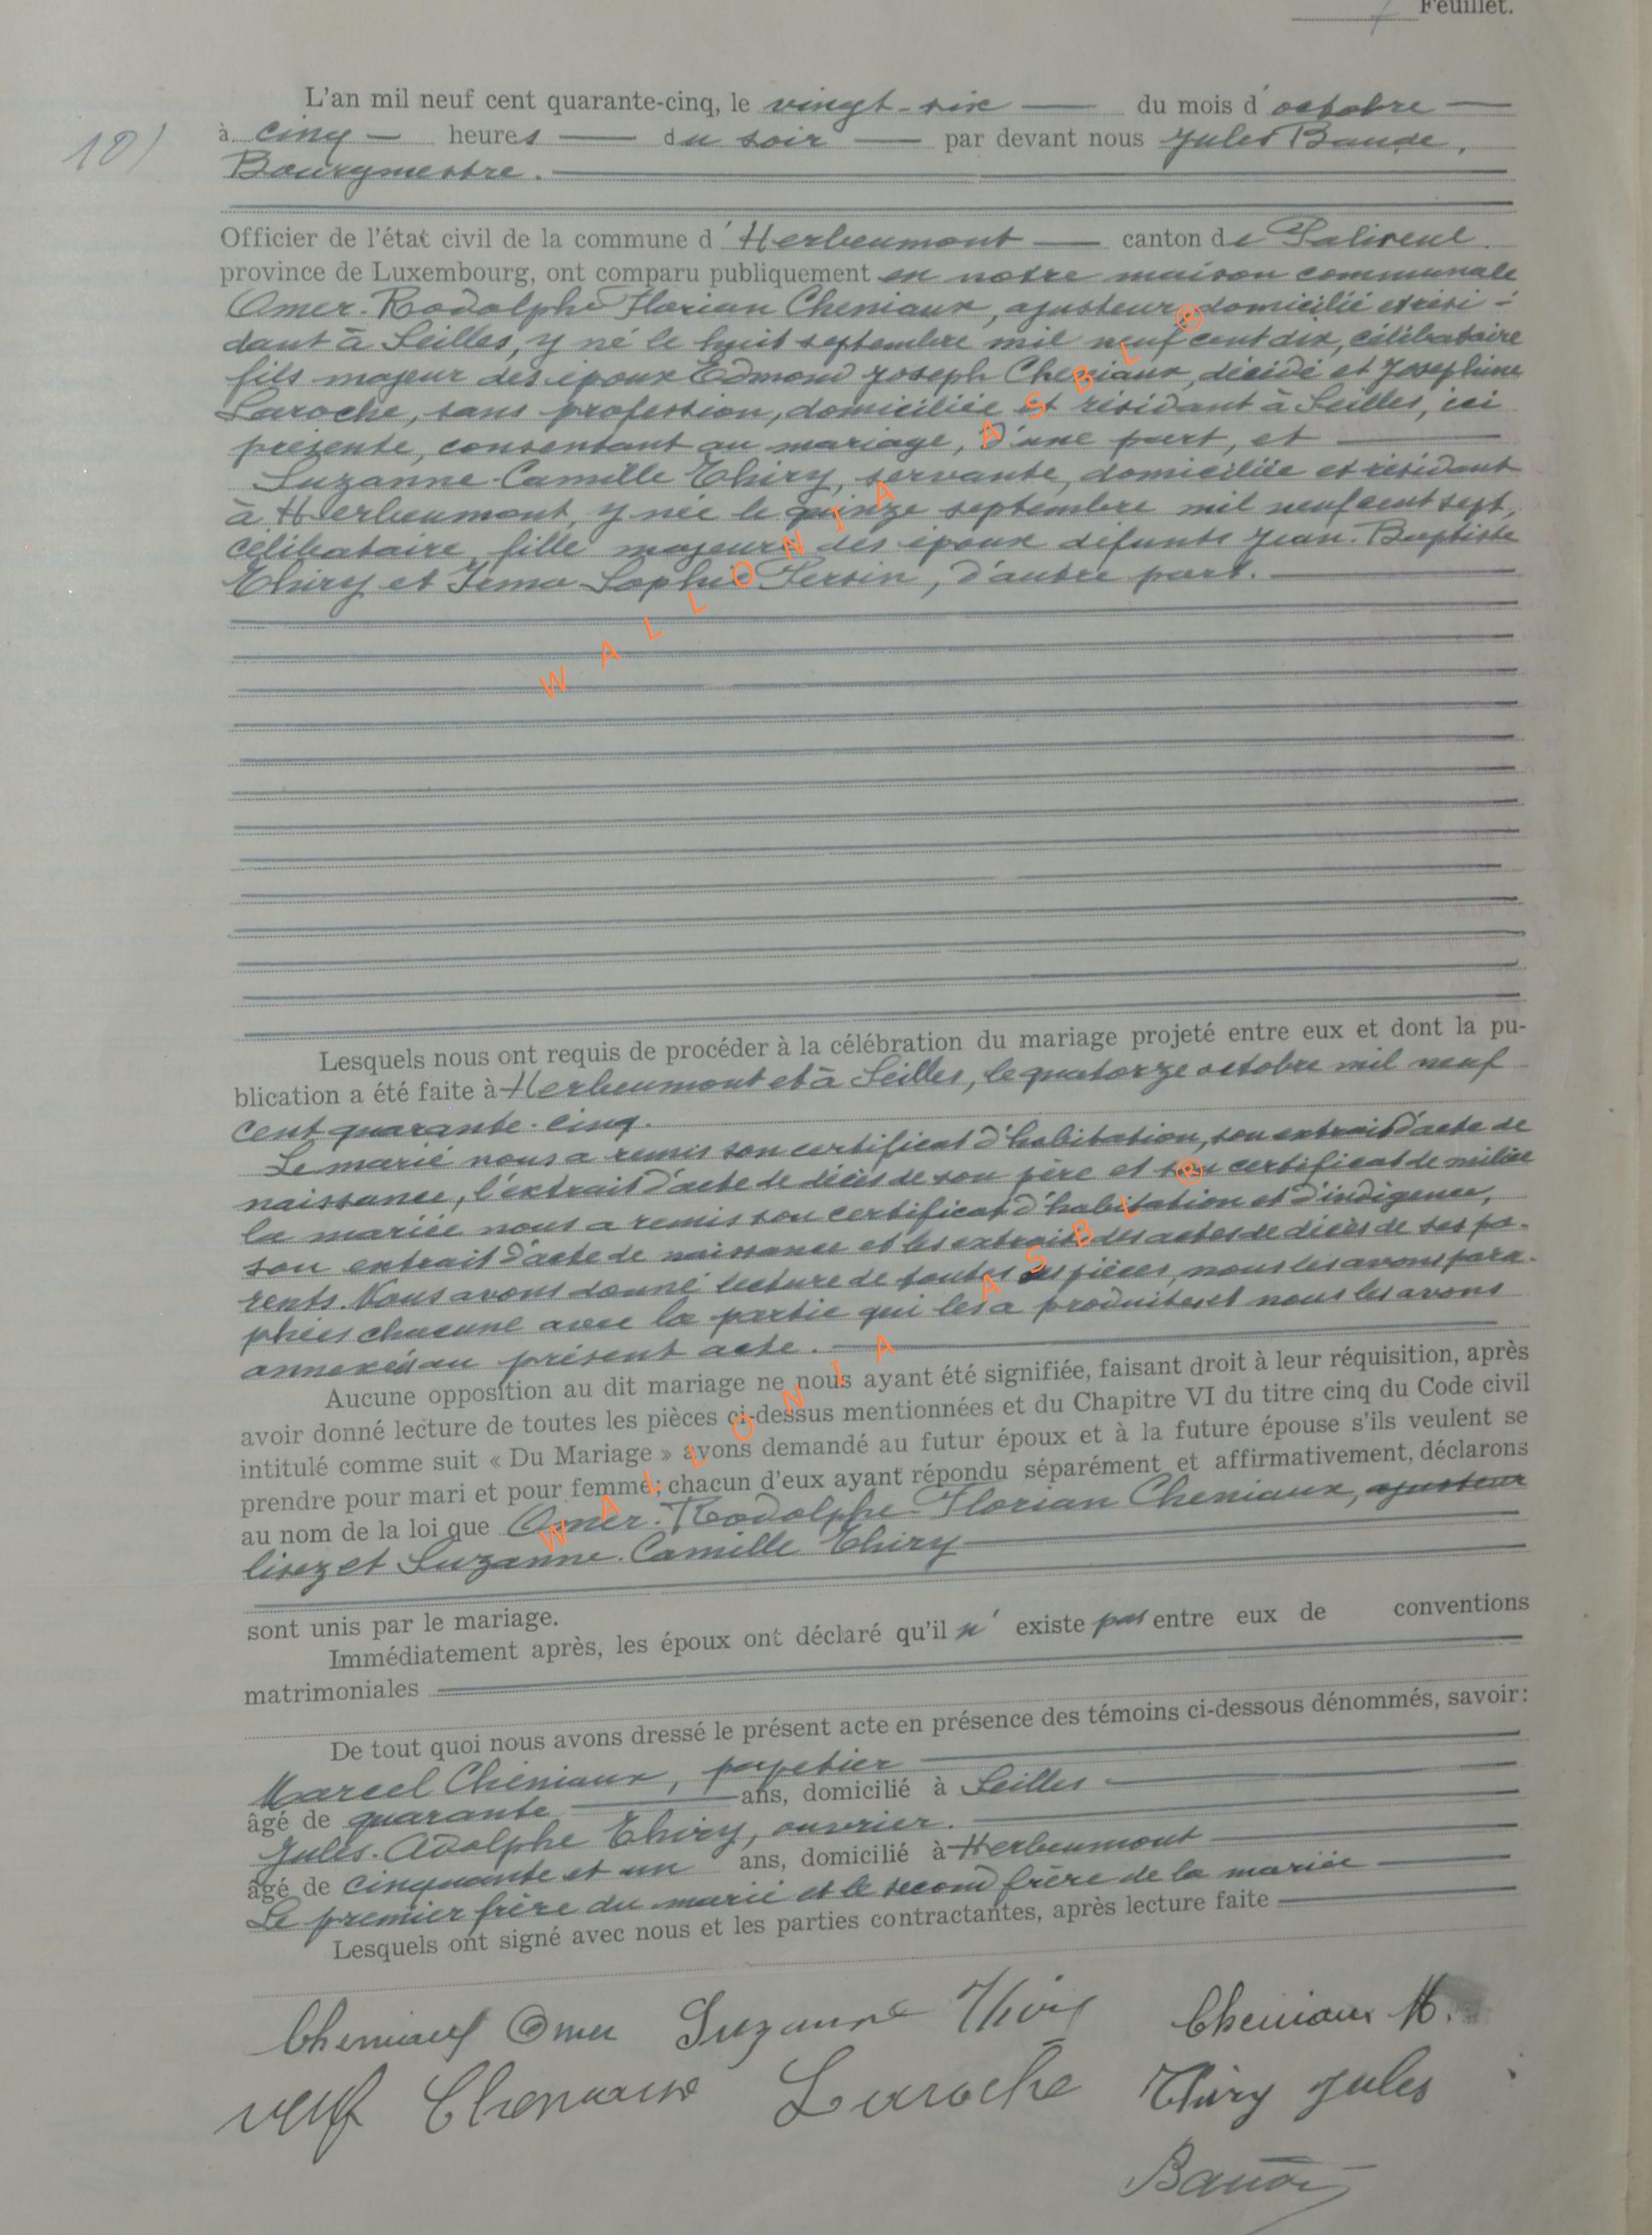 7 Feuillet.
10)
L'an mil neuf cent quarante-cinq, le vingt-six du mois d'octobre
à cinq heures du soir par devant nous Jules Baude,
Bourgmestre.
Officier de l'état civil de la commune d'Herbeumont canton de Paliseul.
province de Luxembourg, ont comparu publiquement en notre maison communale
Omer-Rodolphe Florian Cheniaux, ajusteur, domicilié et rési-
dant à Seilles, y né le huit septembre mil neuf cent dix, célibataire
fils majeur des époux Edmond Joseph Cheniaux, décédé et Joséphine
Laroche, sans profession, domiciliée et résidant à Seilles, ici
présente, consentant au mariage, d'une part, et
Suzanne-Camille Thiry, servante, domiciliée et résidant
à Herbeumont, y née le quinze septembre mil neuf cent sept,
célibataire, fille majeure des époux défunts Jean-Baptiste
Thiry et Irma-Sophie Persin, d'autre part.
WALLONIA ASBL ®
Lesquels nous ont requis de procéder à la célébration du mariage projeté entre eux et dont la pu-
blication a été faite à Herbeumont et à Seilles, le quatorze octobre mil neuf
cent quarante-cinq.
Le marié nous a remis son certificat d'habitation, son extrait d'acte de
naissance, l'extrait d'acte de décès de son père et son certificat de milice
la mariée nous a remis son certificat d'habitation et d'indigence,
son extrait d'acte de naissance et les extraits des actes de décès de ses pa-
rents. Nous avons donné lecture de toutes ces pièces, nous les avons para-
phées chacune avec la partie qui les a produites et nous les avons
annexées au présent acte.
Aucune opposition au dit mariage ne nous ayant été signifiée, faisant droit à leur réquisition, après
avoir donné lecture de toutes les pièces ci-dessus mentionnées et du Chapitre VI du titre cinq du Code civil
intitulé comme suit « Du Mariage » avons demandé au futur époux et à la future épouse s'ils veulent se
prendre pour mari et pour femme; chacun d'eux ayant répondu séparément et affirmativement, déclarons
au nom de la loi que Omer-Rodolphe-Florian Cheniaux, ajusteur
lisez et Suzanne-Camille Thiry
WALLONIA ASBL ®
sont unis par le mariage.
Immédiatement après, les époux ont déclaré qu'il n' existe pas entre eux de conventions
matrimoniales
De tout quoi nous avons dressé le présent acte en présence des témoins ci-dessous dénommés, savoir:
Marcel Cheniaux, papetier
âgé de quarante ans, domicilié à Seilles
Jules-Adolphe Thiry, ouvrier.
âgé de cinquante et un ans, domicilié à Herbeumont
Le premier frère du marié et le second frère de la mariée
Lesquels ont signé avec nous et les parties contractantes, après lecture faite
Cheniaux Omer Suzanne Thiry Cheniaux M.
Cheniaux Laroche Thiry Jules
Baude